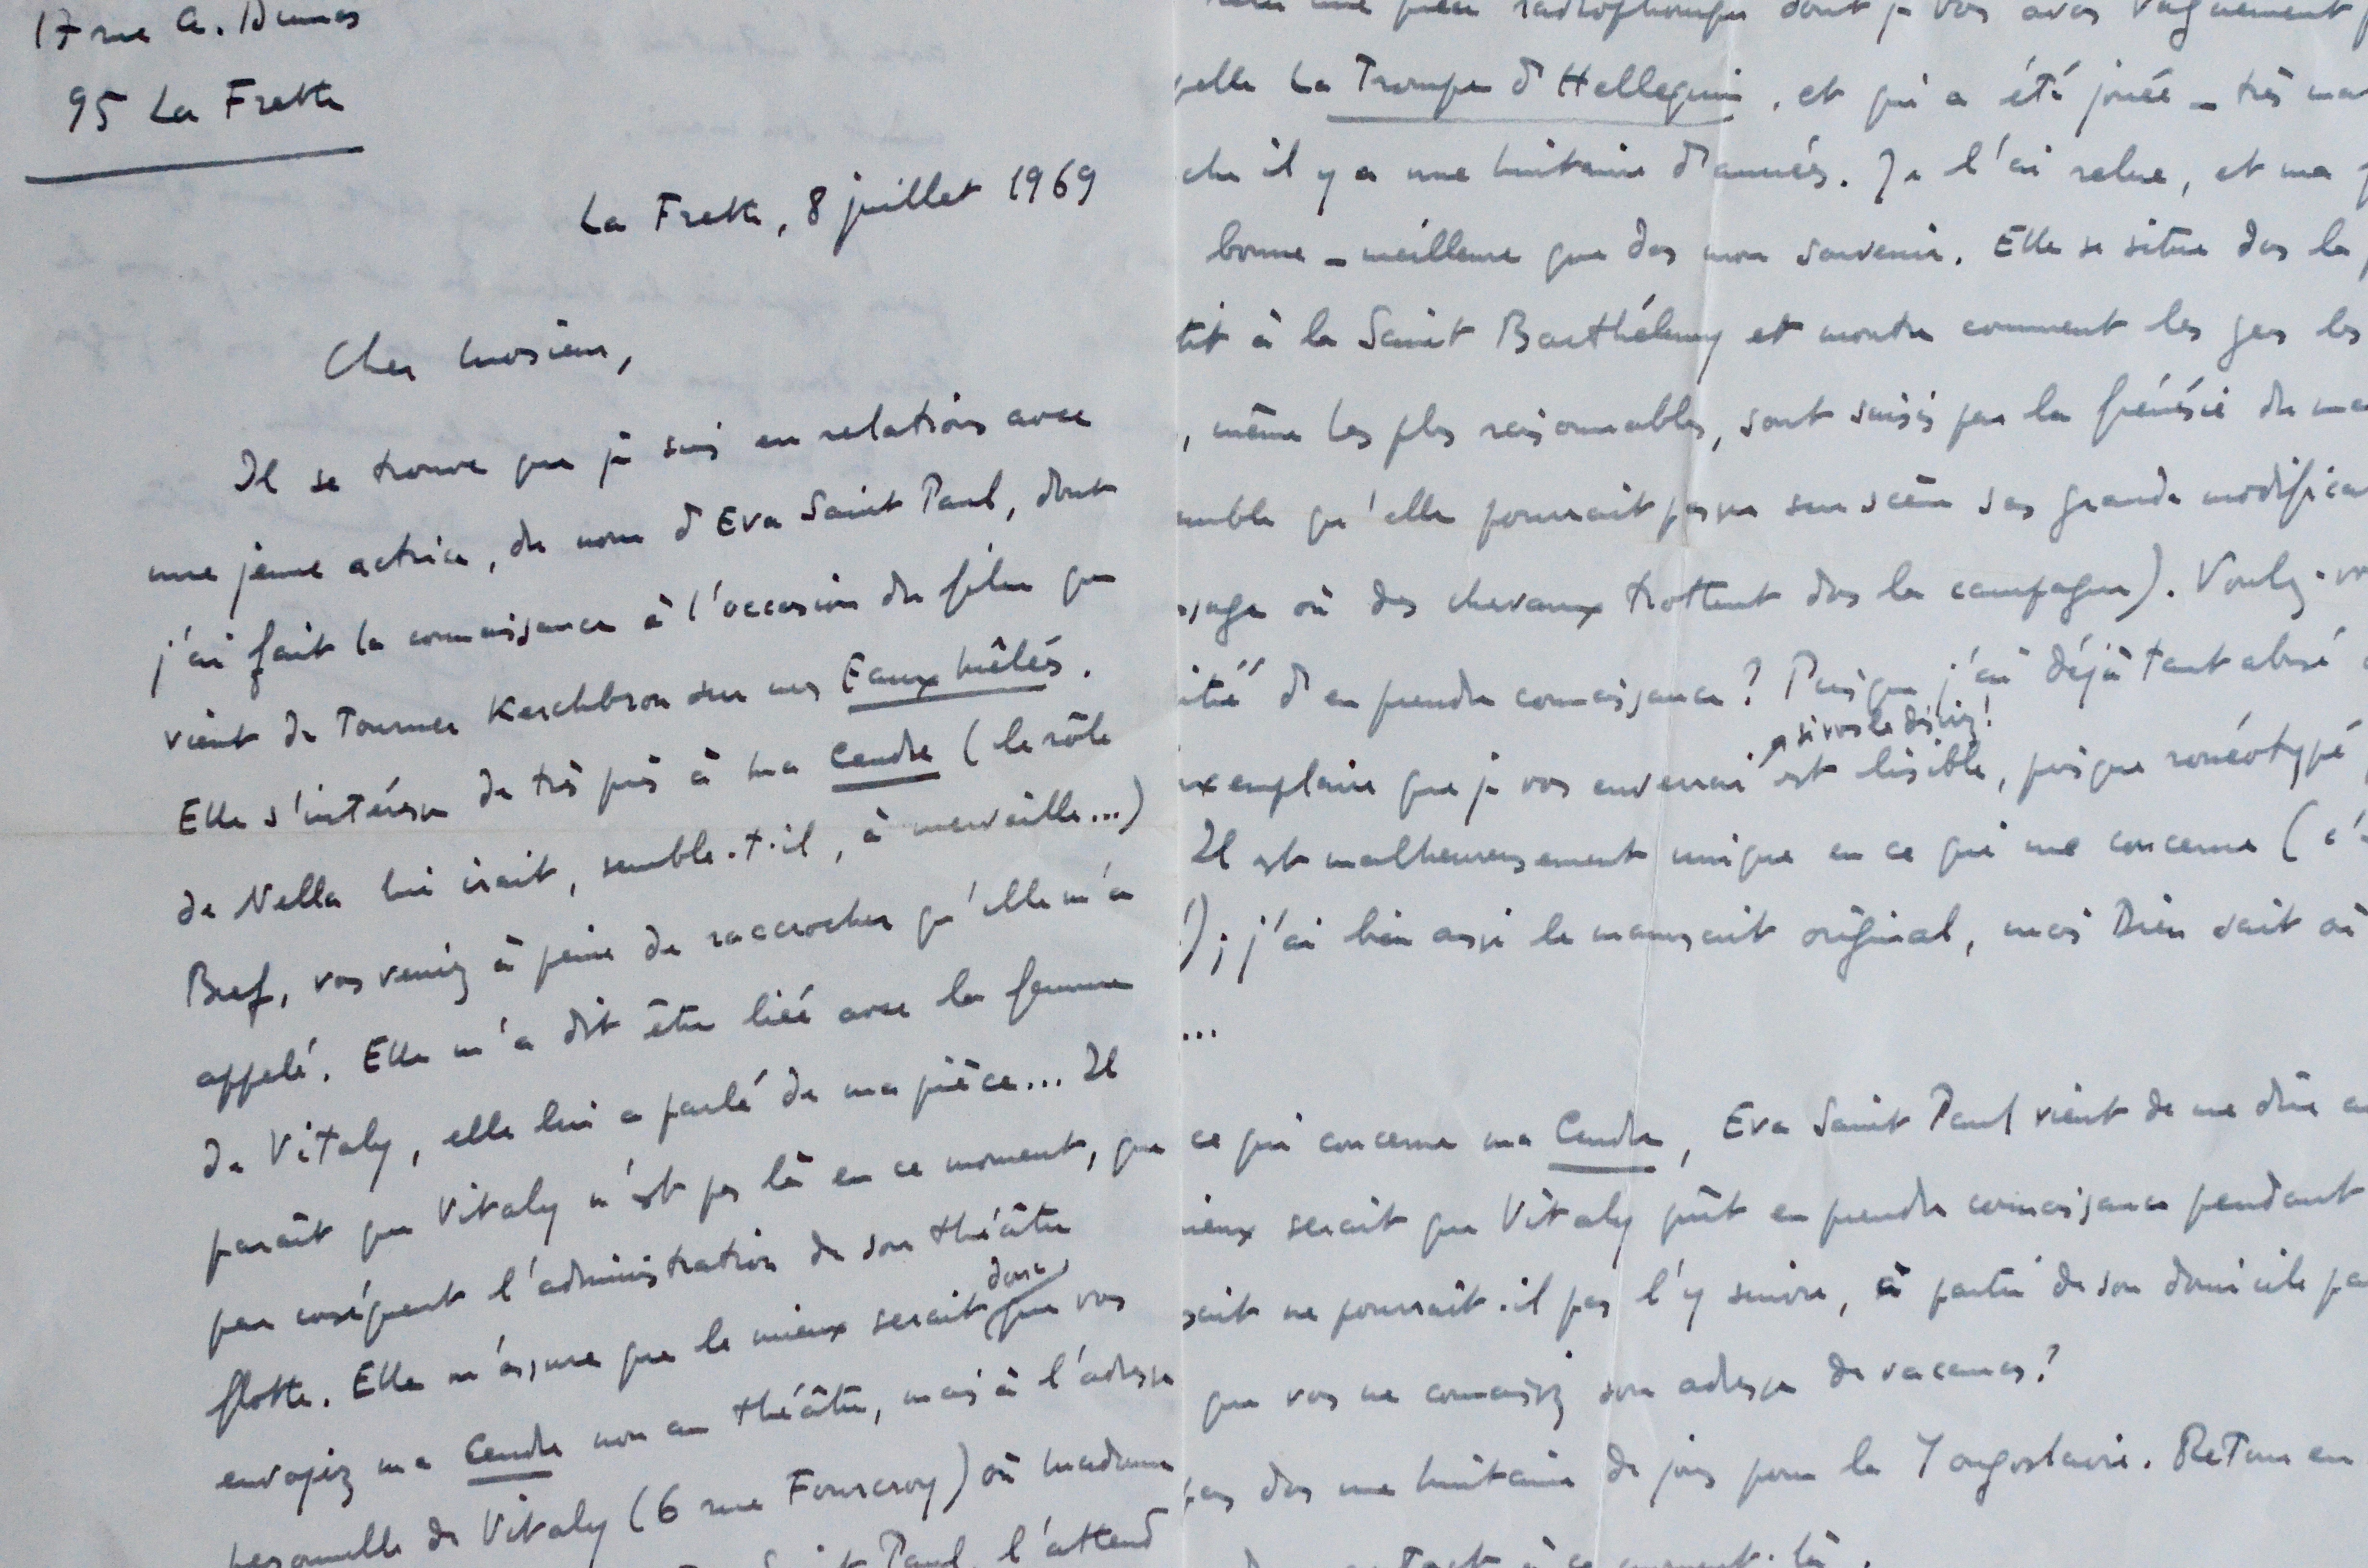 17 rue A. Dumas
95 La Frette
La Frette, 8 juillet 1969
Cher Monsieur,
Il se trouve que je suis en relations avec
une jeune actrice, du nom d'Eva Saint Paul, dont
j'ai fait la connaissance à l'occasion du film que
vient de tourner Kerchbron sur mes Eaux mêlées.
Elle s'intéresse de très près à ma Cendre (le rôle
de Nella lui irait, semble-t-il, à merveille...)
Bref, vous veniez à peine de raccrocher qu'elle m'a
appelé. Elle m'a dit être liée avec la femme
de Vitaly, elle lui a parlé de ma pièce... Il
paraît que Vitaly n'est pas là en ce moment, que
par conséquent l'administration de son théâtre
flotte. Elle m'assure que le mieux serait donc que vous
envoyiez ma Cendre non au théâtre, mais à l'adresse
personnelle de Vitaly (6 rue Fourcroy) où Madame
Saint Paul, l'attend
une pièce radiophonique dont je vous avais vaguement
pelle La Troupe d'Hellequin, et qui a été jouée - très mal
che il y a une huitaine d'années. Je l'ai relue, et ma
bonne - meilleure que dans mon souvenir. Elle se situe dans la
tit à la Saint Barthélemy et montre comment les gens les
, même les plus raisonnables, sont saisis par la frénésie du
emble qu'elle pourrait passer sur scène sans grande modifica
ssage où des chevaux trottent dans la campagne). Voulez-vo
ité d'en prendre connaissance? Puisque j'ai déjà tant abusé
si vous le désirez!
exemplaire que je vous enverrai est lisible, puisque ronéotypé
Il est malheureusement unique en ce qui me concerne (c'
!); j'ai bien aussi le manuscrit original, mais Dieu sait où
...
ce qui concerne ma Cendre, Eva Saint Paul vient de me dire
mieux serait que Vitaly pût en prendre connaissance pendant
sait ne pourrait-il pas l'y suivre, à partir de son domicile pa
que vous ne connaissiez son adresse de vacances?
pars dans une huitaine de jours pour la Yougoslavie. Retour en
à ce moment-là.